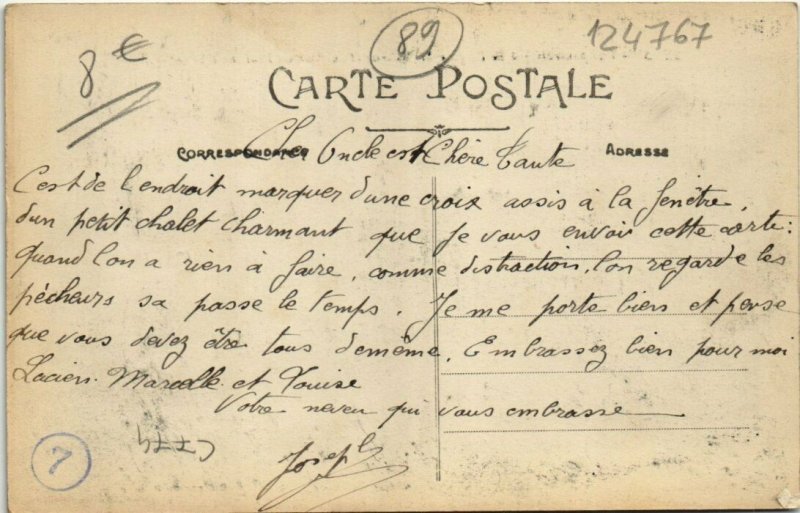 8 €
89
124767
CARTE POSTALE
CORRESPONDANCE
ADRESSE
Cher Oncle est Chère Tante
C'est de l'endroit marquer d'une croix assis à la fenêtre
d'un petit chalet charmant que je vous envoie cette carte:
quand l'on a rien à faire, comme distraction, l'on regarde les
pécheurs sa passe le temps. Je me porte bien et pense
que vous devez être tous demême. Embrassez bien pour moi
Lucien. Marcelle et Louise
Votre neveu qui vous embrasse
Joseph
7